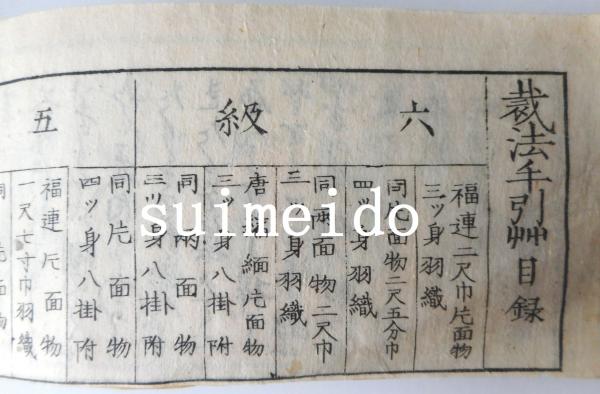 裁法手引艸目録
六級
福連二尺巾片面物
三ッ身羽織
同片面物二尺五分巾
四ッ身羽織
同両面物二尺巾
三ッ身羽織
唐縮緬片面物
三ッ身八掛附
同両面物
三ッ身八掛附
同片面物
四ッ身八掛附
五
福連片面物
一尺七寸巾羽織
suimeido